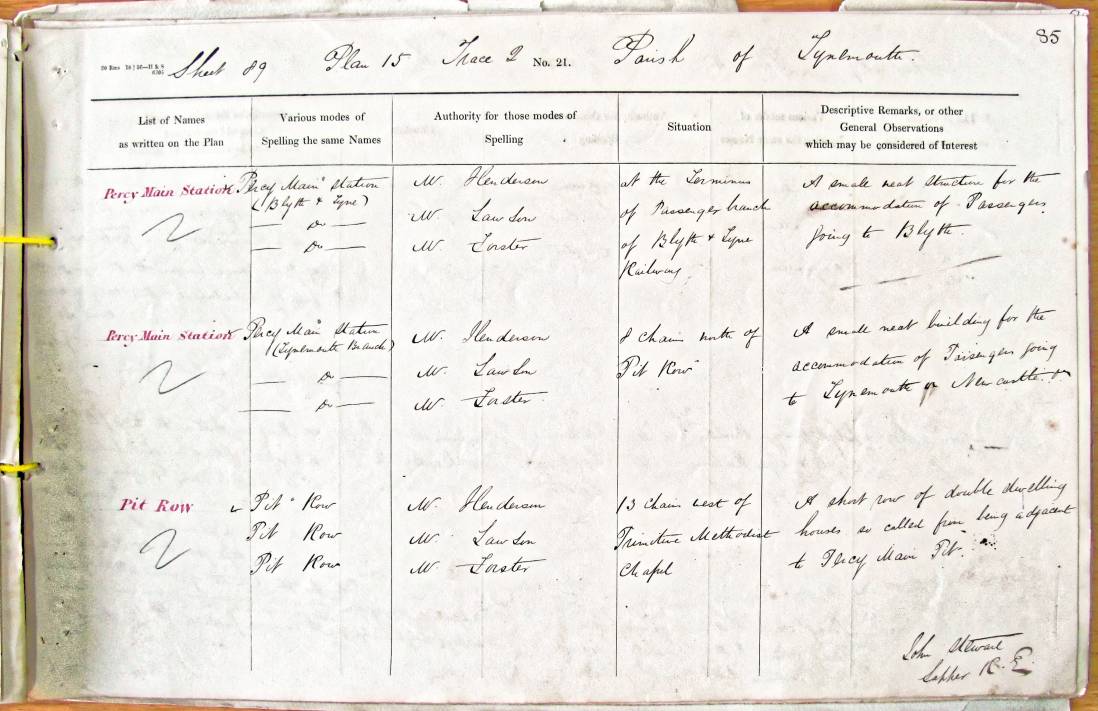 85
Sheet 89 Plan 15 Trace 2 No. 21. Parish of Tynemouth.
List of Names as written on the Plan
Various modes of Spelling the same Names
Authority for those modes of Spelling
Situation
Descriptive Remarks, or other General Observations which may be considered of Interest
Percy Main Station
Percy Main Station
(Blyth & Tyne)
— Do —
— Do —
W. Henderson
W. Lawson
W. Forster
at the Terminus
of Passenger branch
of Blyth & Tyne
Railway
A small neat structure for the
accommodation of Passengers
going to Blyth.
Percy Main Station
Percy Main Station
(Tynemouth Branch)
— Do —
— Do —
W. Henderson
W. Lawson
W. Forster
8 chains north of
Pit Row
A small neat building for the
accommodation of Passengers going
to Tynemouth or Newcastle.
Pit Row
Pit Row
Pit Row
Pit Row
W. Henderson
W. Lawson
W. Forster
13 chains west of
Primitive Methodist
Chapel
A short row of double dwelling
houses so called from being adjacent
to Percy Main Pit.
John Stewart
Sapper R.E.